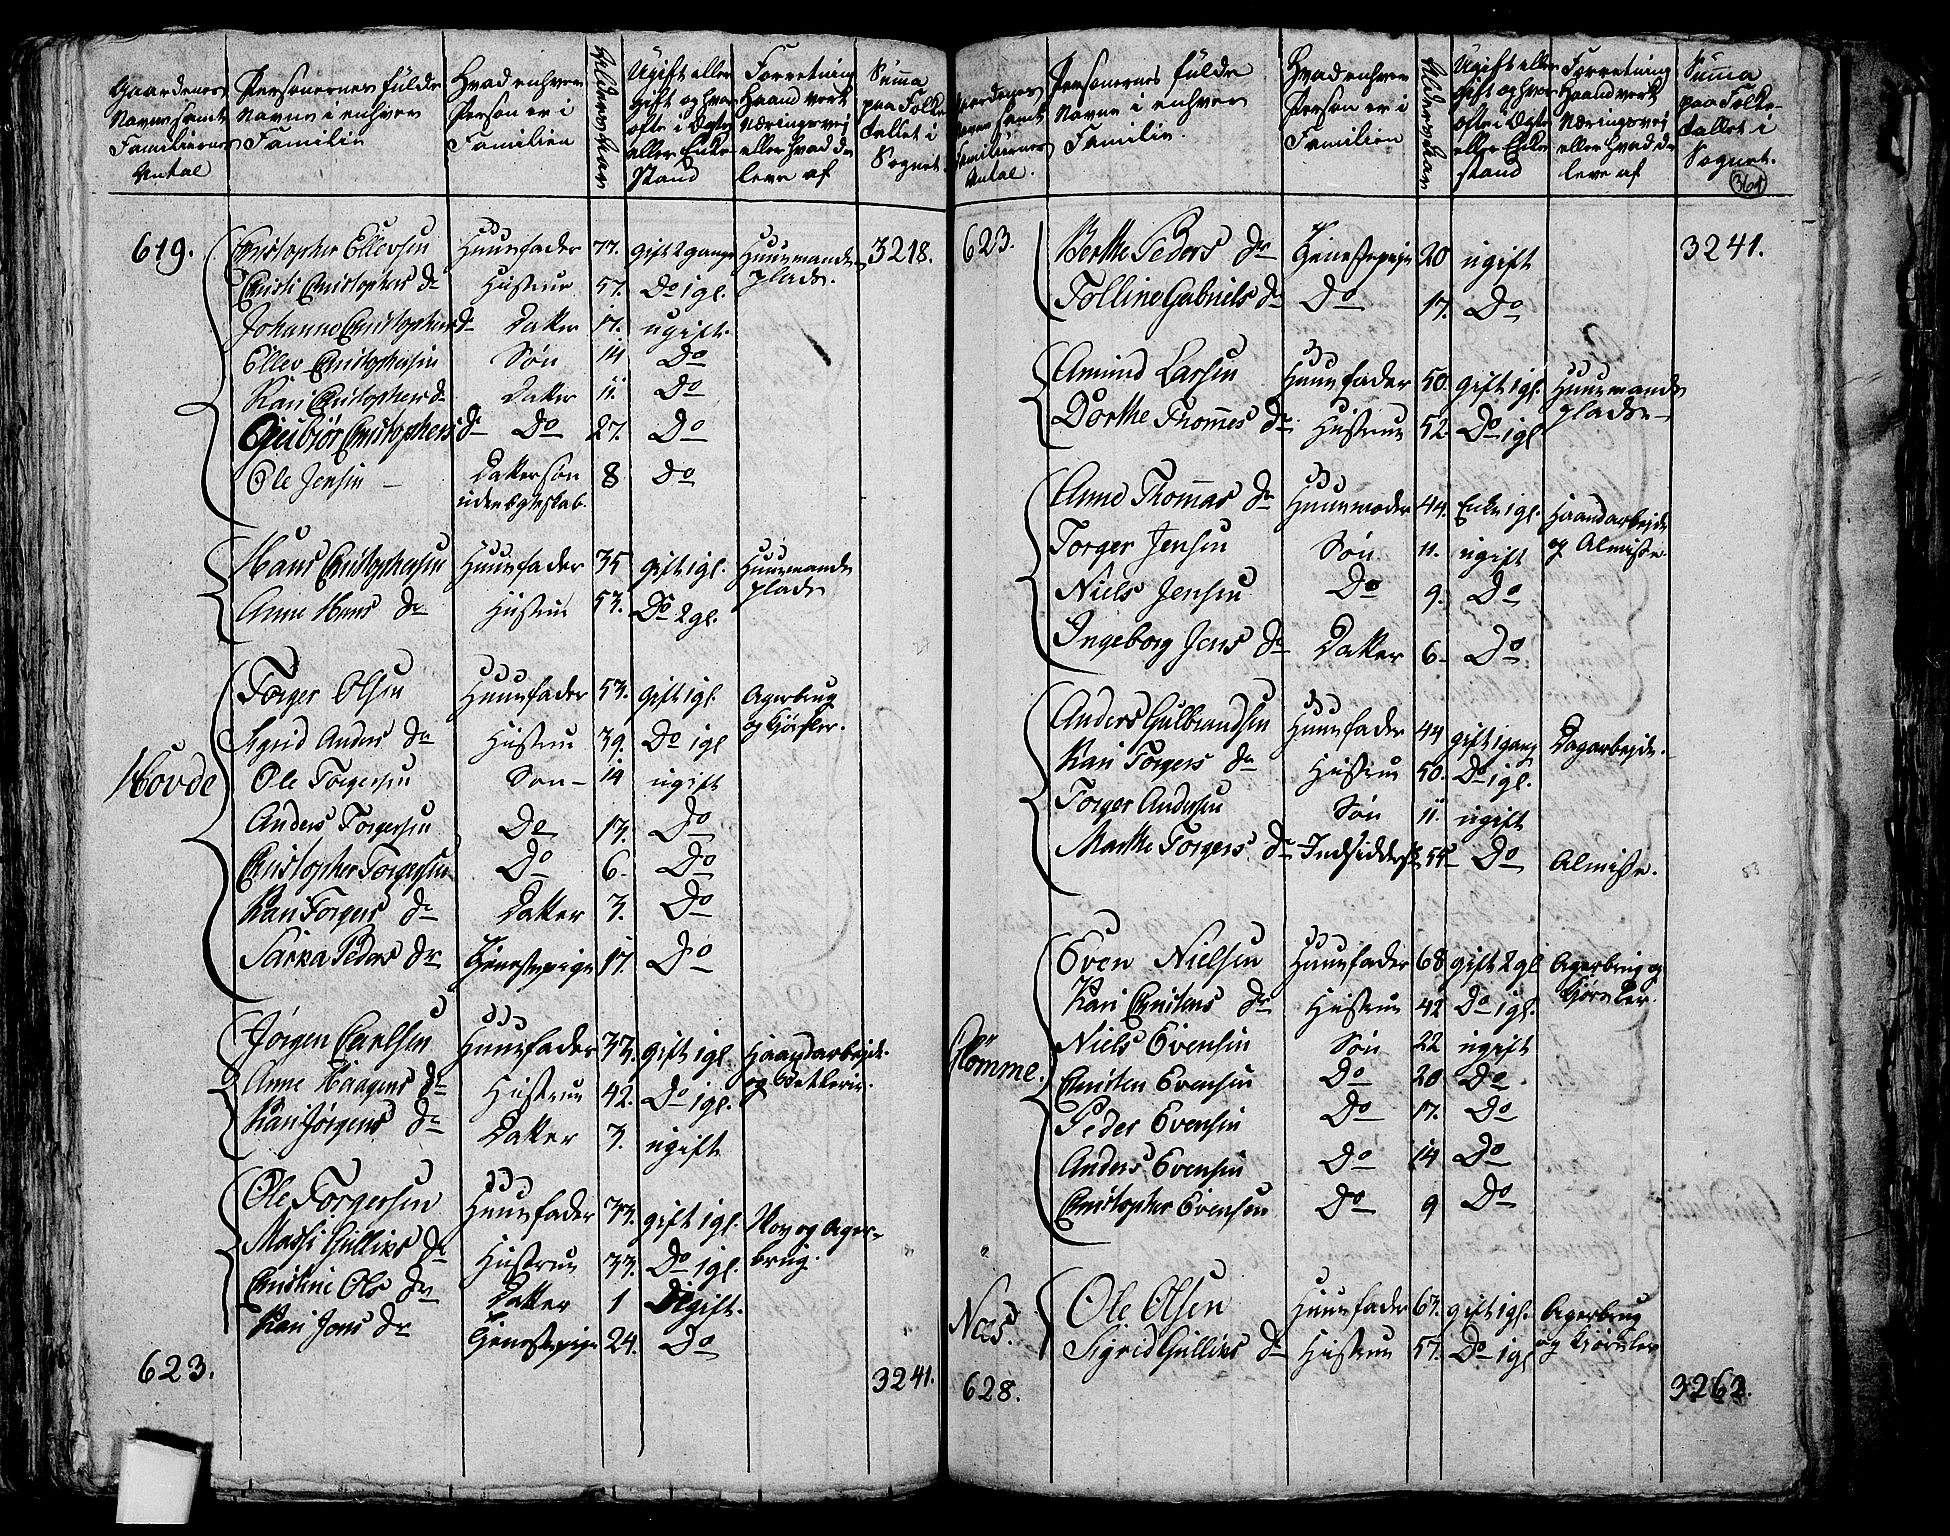 Gaardenes Navne samt Familiernes Antal
Personernes fulde Navne i enhver Familie
Hvad enhver Person er i Familien
Ugift eller Gift og hvor ofte i Ægte eller Enke Stand
Forretning Haandverk Næringsvej eller hvad de leve af
Summa paa Folketallet i Sognet.
619. Christopher Ellevsen Huusfader 77. gift 2 gange Huusmands plads. 3218.
Christi Christophers Dr Hustrue 57. Do 1 gl.
Johanne Christophers Dr Datter 17. ugift.
Ellev Christophersen Søn 14 Do
Kari Christophers Dr Datter 11. Do
Gubiør Christophers Dr Do 27. Do
Ole Jensen – Dattersøn 8 Do
uden Egteskab.
Hans Christophersen Huusfader 35 gift 1 gl. Huusmands plads
Anne Hans Dr Hustrue 53. Do 2 gl.
Torger Olsen Huusfader 53. gift 1 gl. Agerbrug
Sigrid Anders Dr Hustrue 39. Do 1 gl og Kjørsler.
Hovde Ole Torgersen Søn – 14 ugift
Anders Torgersen Do 13. Do
Christopher Torgersen Do 6. Do
Kari Torgers Dr Datter 3. Do
Peders Dr Tjenestepige 17. Do
Jørgen Carlsen Huusfader 33. gift 1 gl. Haandarbejde
Anne Haagens Dr Hustrue 42. Do 1 gl. og Betlerie.
Kari Jørgens Dr Datter 3. ugift
Ole Torgersen Huusfader 33. gift 1 gl. Skov og Ager-
Massi Gulliks Dr Hustrue 33. Do 1 gl. brug.
Christine Ols Dr Datter 1 Ugift.
Kari Jens Dr Tjenestepige 24. Do
623. 3241.
Gaardenes Navne samt Familiernes Antal.
Personernes fulde Navne i enhver Familie.
Hvad enhver Person er i Familien
Ugift eller Gift og hvor ofte i Ægte eller Enke stand
Forretning Haandverk Næringsvej eller hvad de leve af
Summa paa Folketallet i Sognet.
361
623. Berthe Peders Dr Tjenestepige 20 ugift 3241.
Tolline Gabriels Dr Do 17. Do
Amund Larsen Huusfader 50. gift 1 gl. Huusmands
Dorthe Thommes Dr Hustrue 52. Do 1 gl plads –
Anne Thommas Dr Huusmoder 44. Enke 1 gl. Haandarbejde
Torger Jensen Søn 11. ugift og Almisse.
Niels Jensen Do 9. Do
Ingeborg Jens Dr Datter 6 – Do
Anders Gulbrandsen Huusfader 44 gift 1 gang Dagarbejde.
Kari Torgers Dr Hustrue 50. Do 1 gl.
Torger Andersen Søn 11. ugift
Marthe Torgers Dr Indsidderske 55 Do Almisse.
Even Nielsen Huusfader 68 gift 2 gl Agerbrug og
Kari Christens Dr Hustrue 42 Do 1 gl. Kjørsler.
Glomme. Niels Evensen Søn 22 ugift
Christen Evensen Do 20 Do
Peder Evensen Do 17. Do
Anders Evensen Do 14 Do
Christopher Evensen Do 9 Do
Næs. Ole Olsen Huusfader 67. gift 1 gl. Agerbrug
Sigrid Gulliks Dr Hustrue 57. Do 1 gl og Kjørsler
628. 3262.